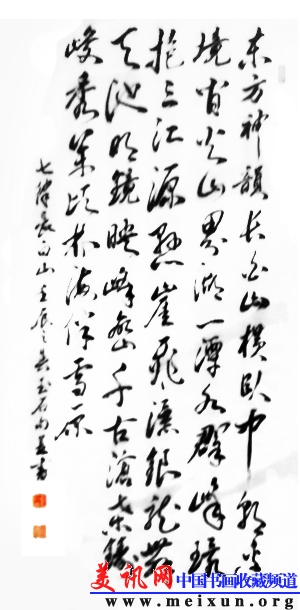 东方神韵长白山横卧中朝至
境皆尖山界湖一潭水群峰环
抱三江源悬崖飞瀑银龙舞
天池明镜映峰峦千古沧桑
峻秀万顷林海伴雪
七律长白山壬辰之 玉石 书
美讯网 中国书画收藏频道
www.meixun.org